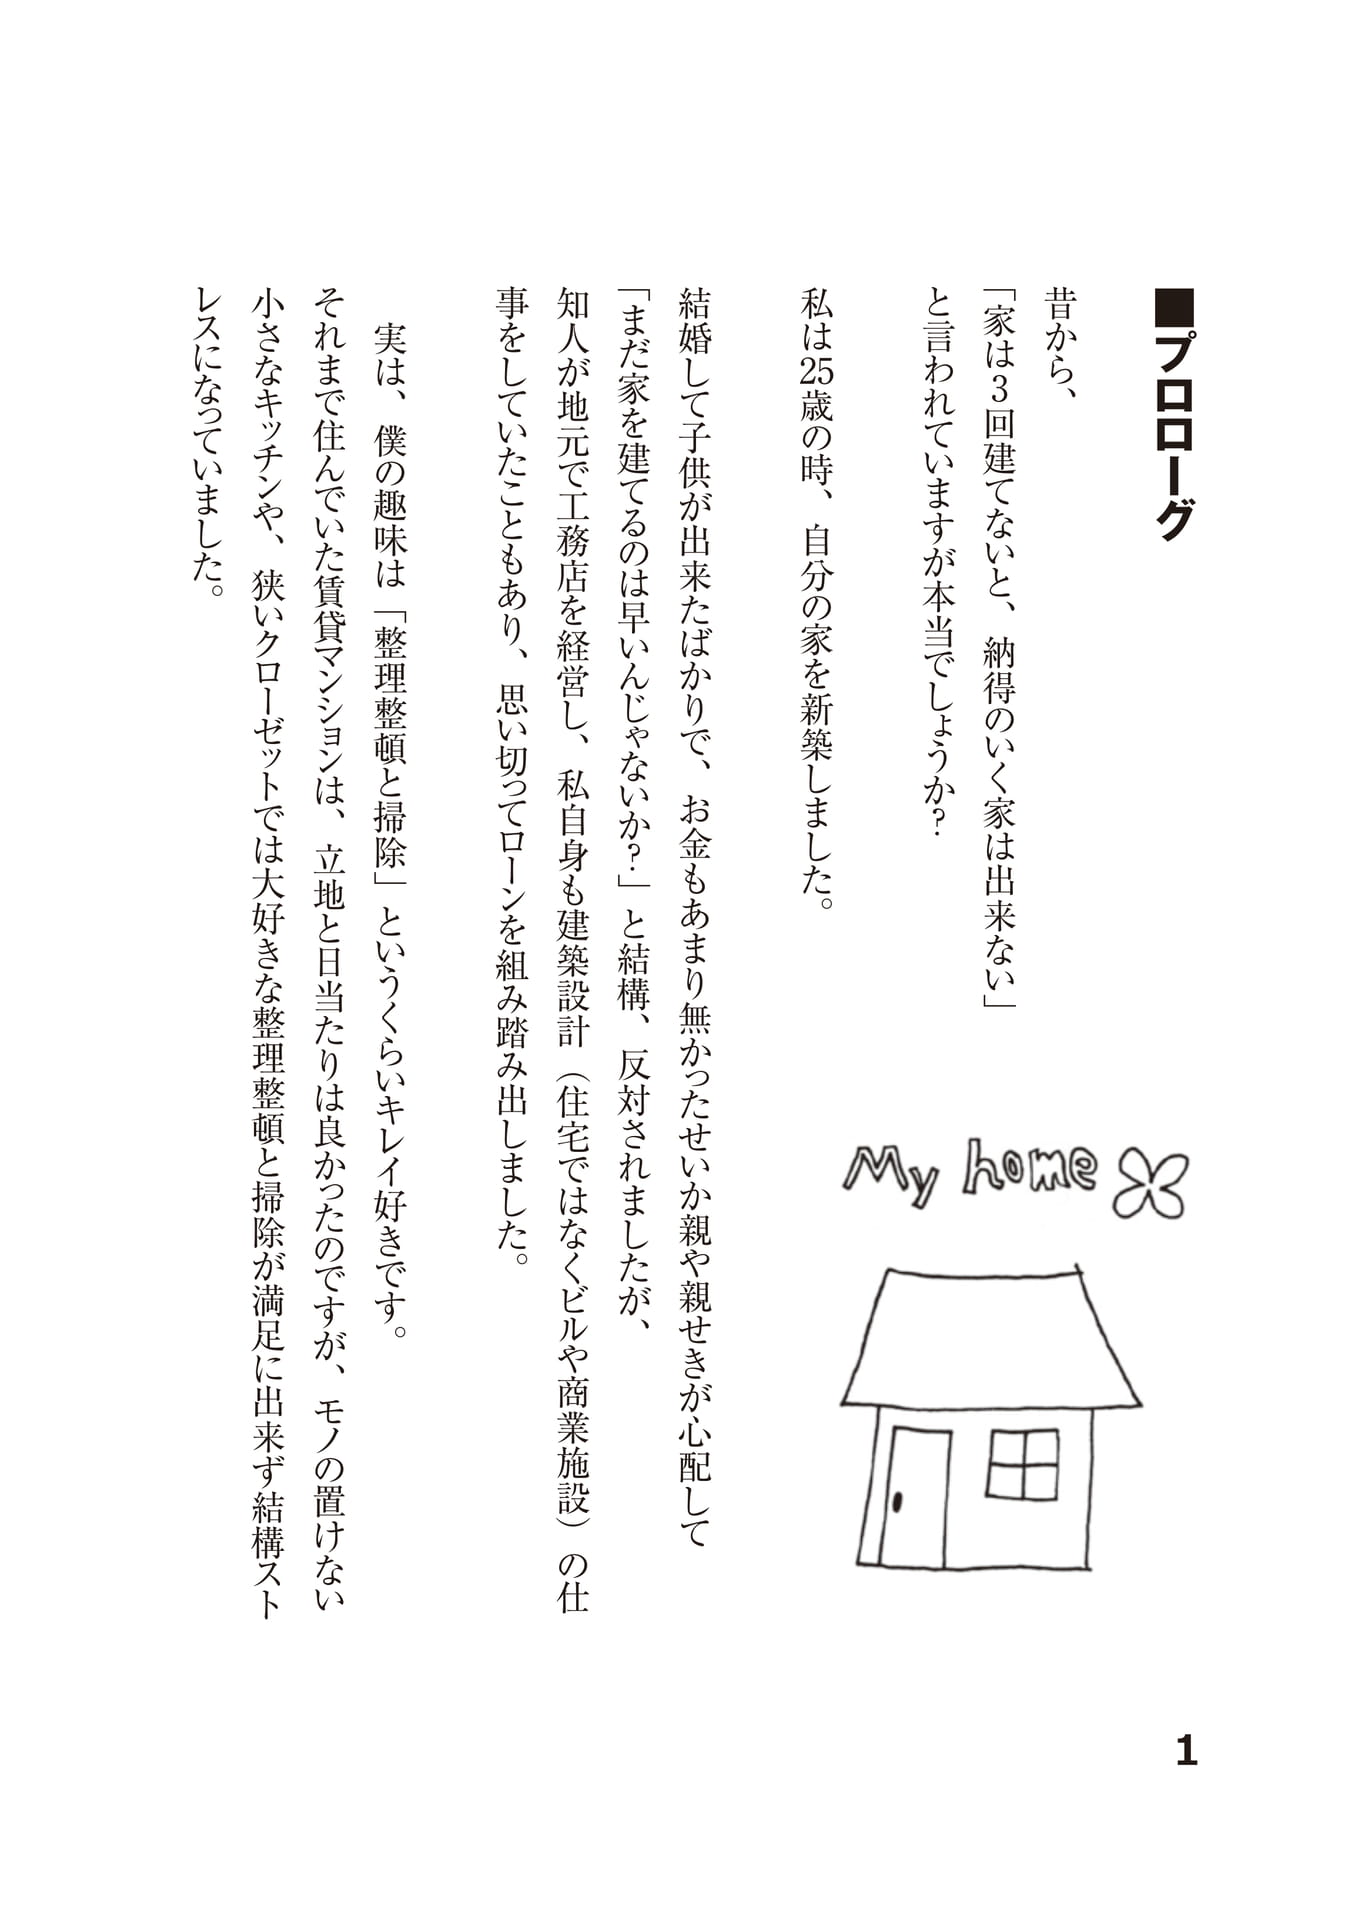 ■プロローグ
昔から、
「家は3回建てないと、納得のいく家は出来ない」
と言われていますが本当でしょうか?
私は25歳の時、自分の家を新築しました。
結婚して子供が出来たばかりで、お金もあまり無かったせいか親や親せきが心配して
「まだ家を建てるのは早いんじゃないか?」と結構、反対されましたが、
知人が地元で工務店を経営し、私自身も建築設計（住宅ではなくビルや商業施設）の仕
事をしていたこともあり、思い切ってローンを組み踏み出しました。
実は、僕の趣味は「整理整頓と掃除」というくらいキレイ好きです。
それまで住んでいた賃貸マンションは、立地と日当たりは良かったのですが、モノの置けない
小さなキッチンや、狭いクローゼットでは大好きな整理整頓と掃除が満足に出来ず結構スト
レスになっていました。
My home
1